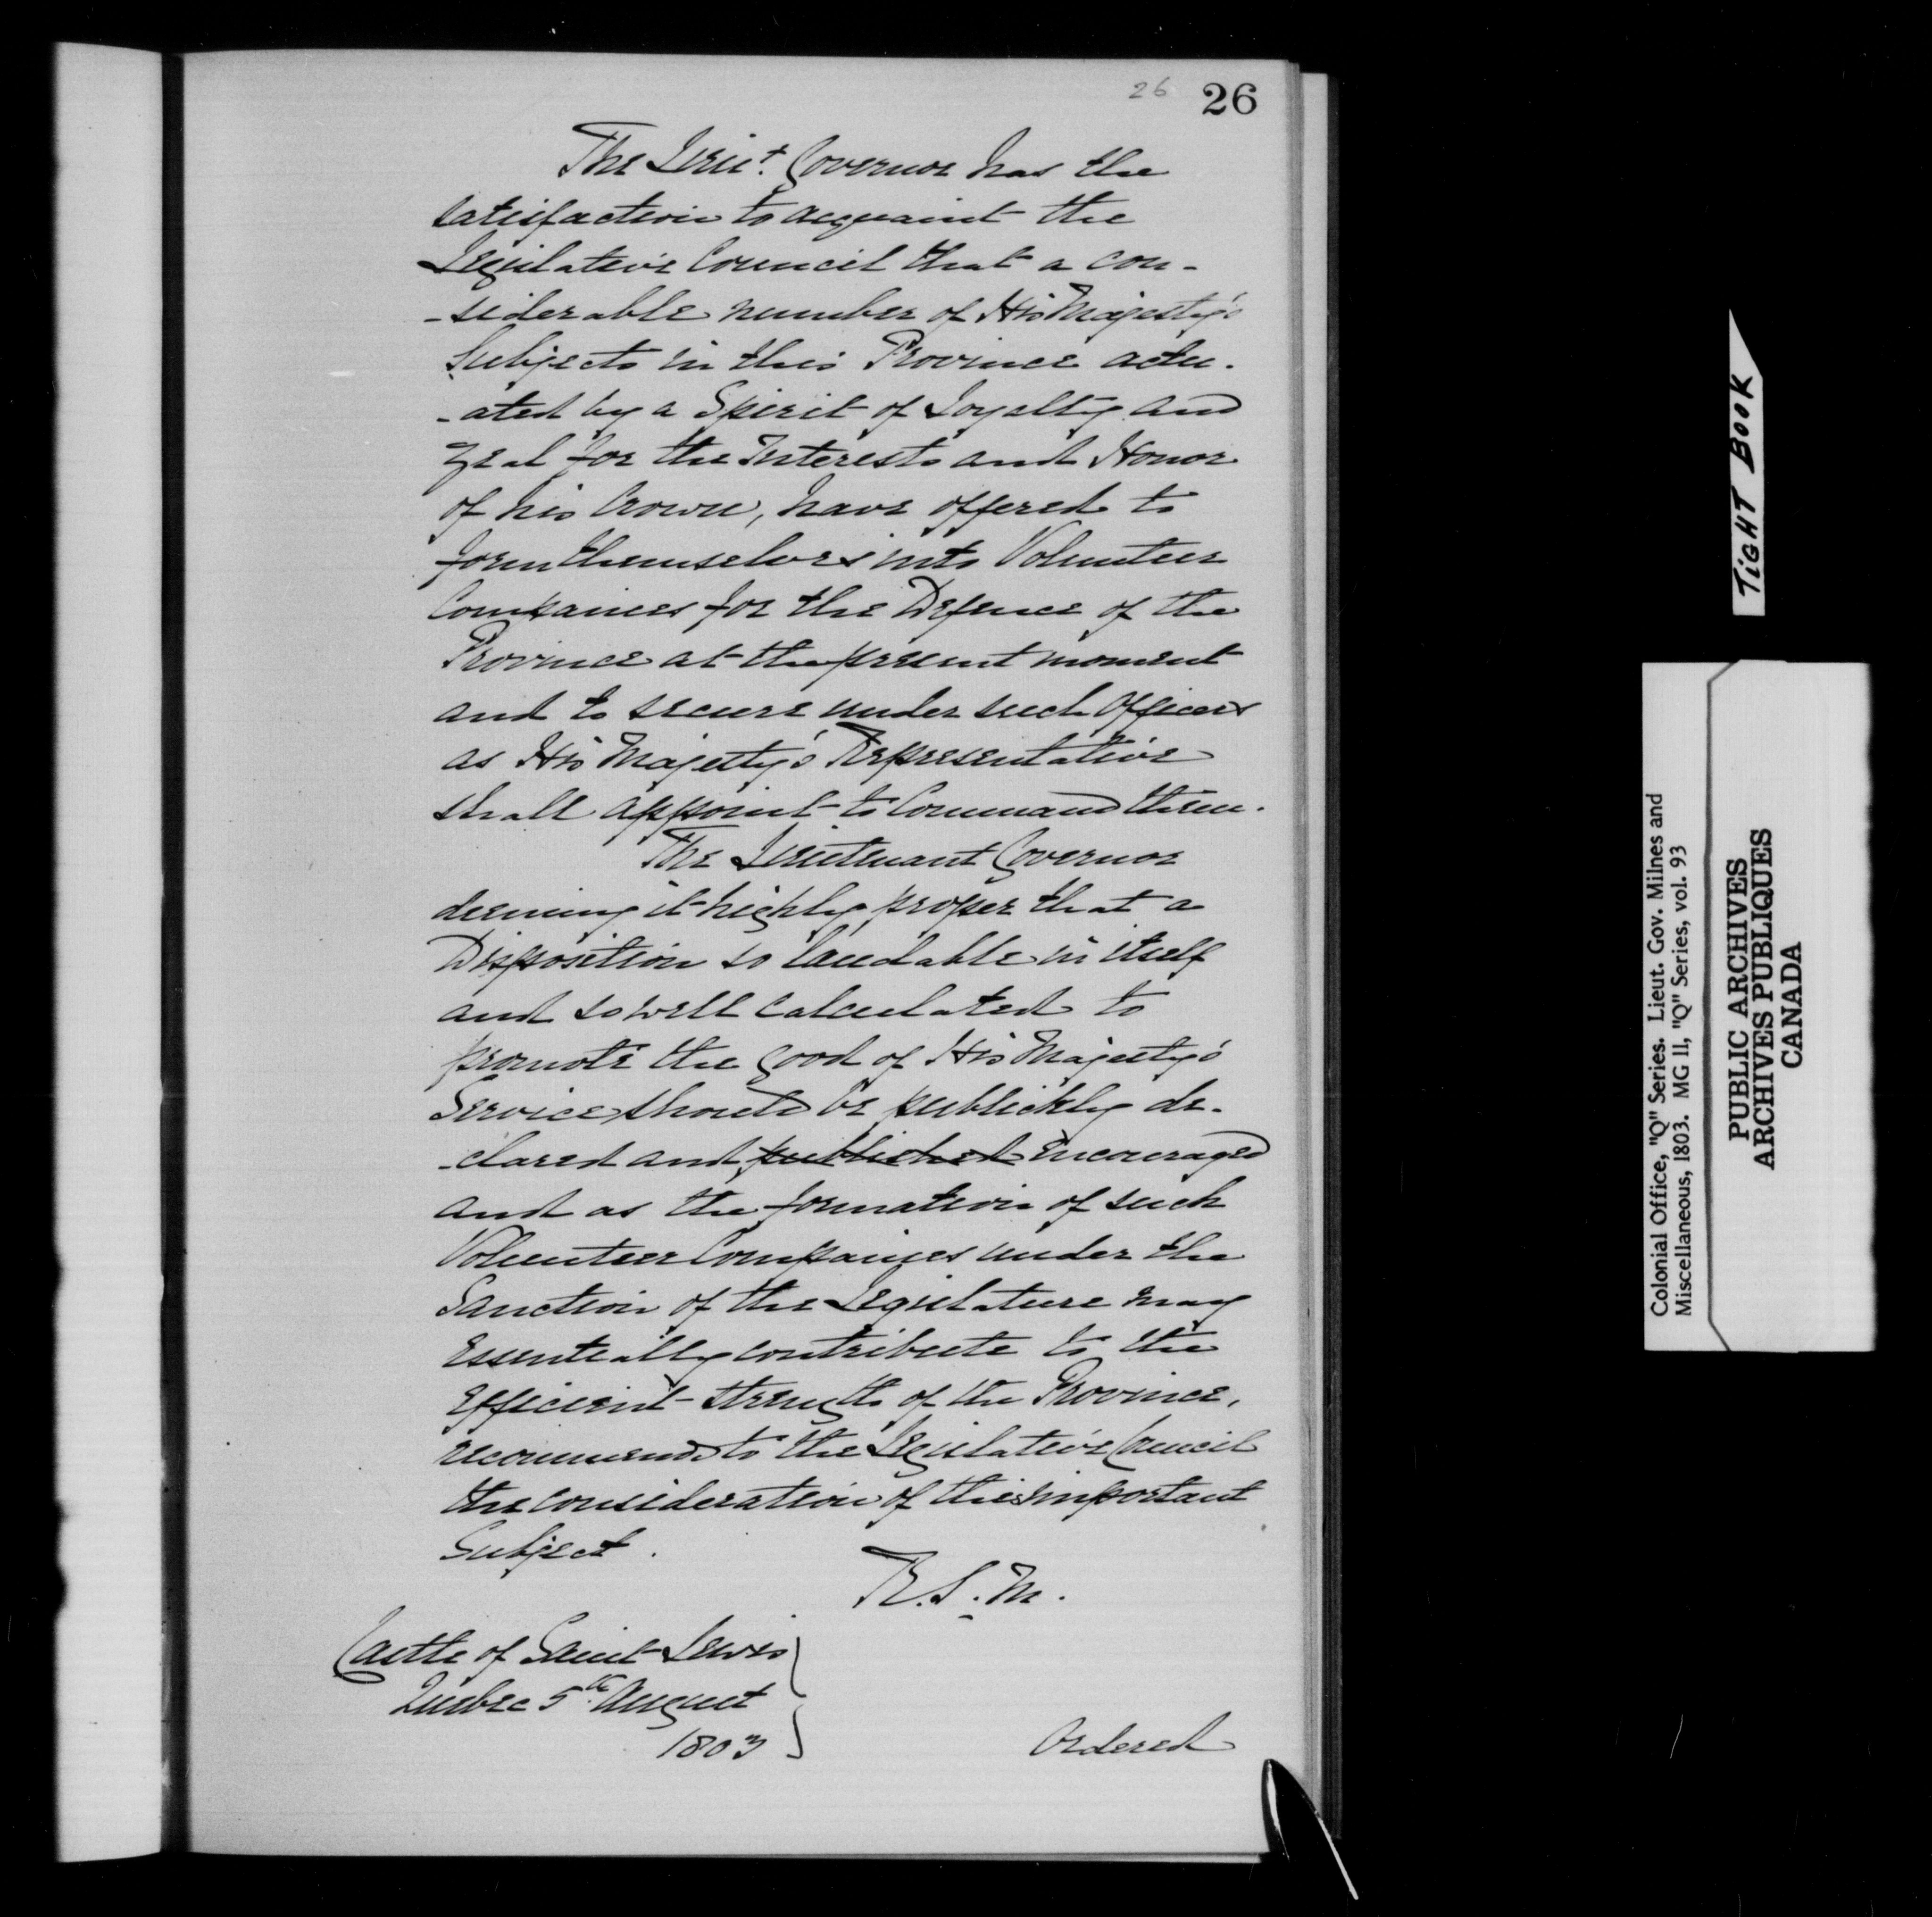 26 26
The Lieut. Governor has the
satisfaction to acquaint the
Legislative Council that a con-
-siderable number of His Majesty's
Subjects in this Province actu-
-ated by a Spirit of Loyalty and
Zeal for the Interests and Honor
of his Crown, have offered to
form themselves into Volunteer
Companies for the Defence of the
Province at the present moment
and to secure under such Officers
as His Majesty's Representative
shall appoint to Command them.
The Lieutenant Governor
deeming it highly proper that a
Disposition so laudable in itself
and so well calculated to
promote the good of His Majesty's
Service should be publickly de-
-clared and published encouraged
and as the formation of such
Volunteer Companies under the
Sanction of the Legislature may
Essentially contribute to the
Efficient strength of the Province,
recommends to the Legislative Council
the consideration of this important
Subject.
R.S.M.
Castle of Saint Lewis
Quebec 5th August
1803
Ordered
TIGHT BOOK
Colonial Office, "Q" Series. Lieut. Gov. Milnes and
Miscellaneous, 1803. MG 11, "Q" Series, vol. 93
PUBLIC ARCHIVES
ARCHIVES PUBLIQUES
CANADA